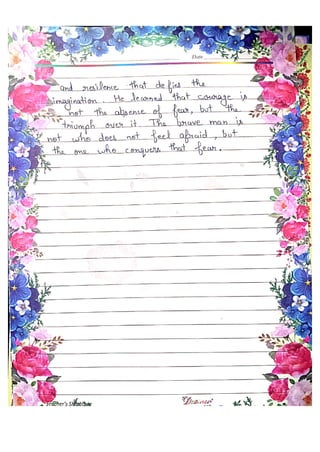 Date
and resilience that defies the
imagination. He learned that courage is
not the absence of fear, but the
triumph over it. The brave man is
not who does not feel afraid, but
the one who conquers that fear.
Teacher's Signature